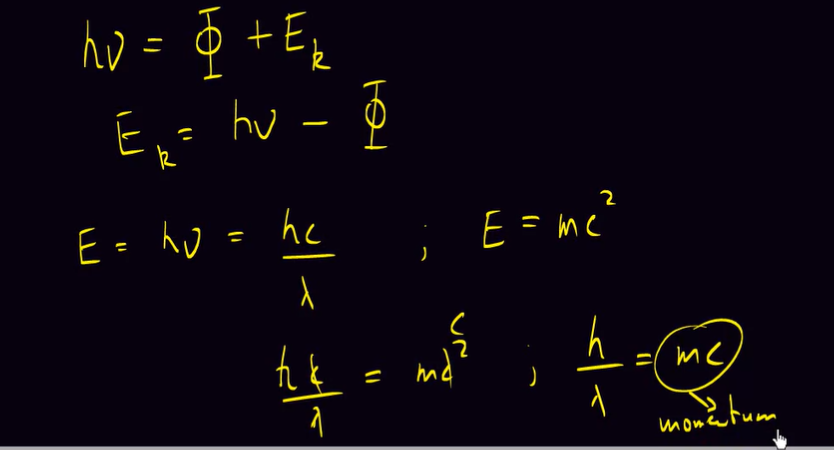 hν = Φ + E_k
E_k = hν − Φ
E = hν = hc/λ ; E = mc²
hc/λ = mc² c ; h/λ = mc
momentum